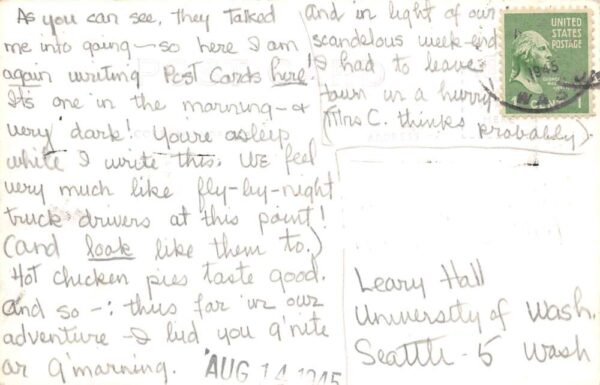 As you can see, they talked
me into going - so here I am
again writing Post Cards here!
It's one in the marning - &
very dark! You're asleep
while I write this. We feel
very much like fly-by-night
truck drivers at this point!
(and look like them to.)
Hot chicken pies taste good.
And so -: thus far in our
adventure - I bid you g'nite
or g'marning.
AUG 14 1945
and in light of our
scandelous week-end
I had to leave
town in a hurry
(Mrs C. thinks probably).
UNITED
STATES
POSTAGE
1945
WASH
1
Leary Hall
University of Wash.
Seattle - 5 Wash